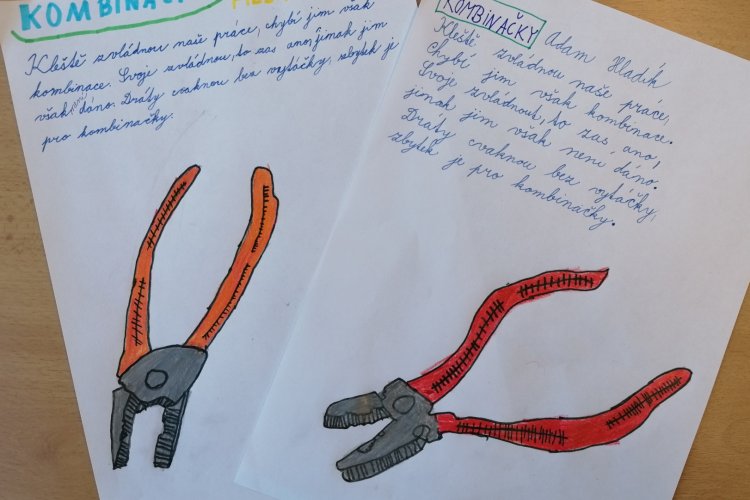 KOMBINAČ
Kleště zvládnou naše práce, chybí jim však
kombinace. Svoje zvládnou, to zas ano, jinak jim
však není dáno. Dráty cvaknou bez vytáčky, zbytek je
pro kombinačky.
KOMBINAČKY Adam Hladík
Kleště zvládnou naše práce,
chybí jim však kombinace.
Svoje zvládnout, to zas ano,
jinak jim však není dáno.
Dráty cvaknou bez vytáčky,
zbytek je pro kombinačky.